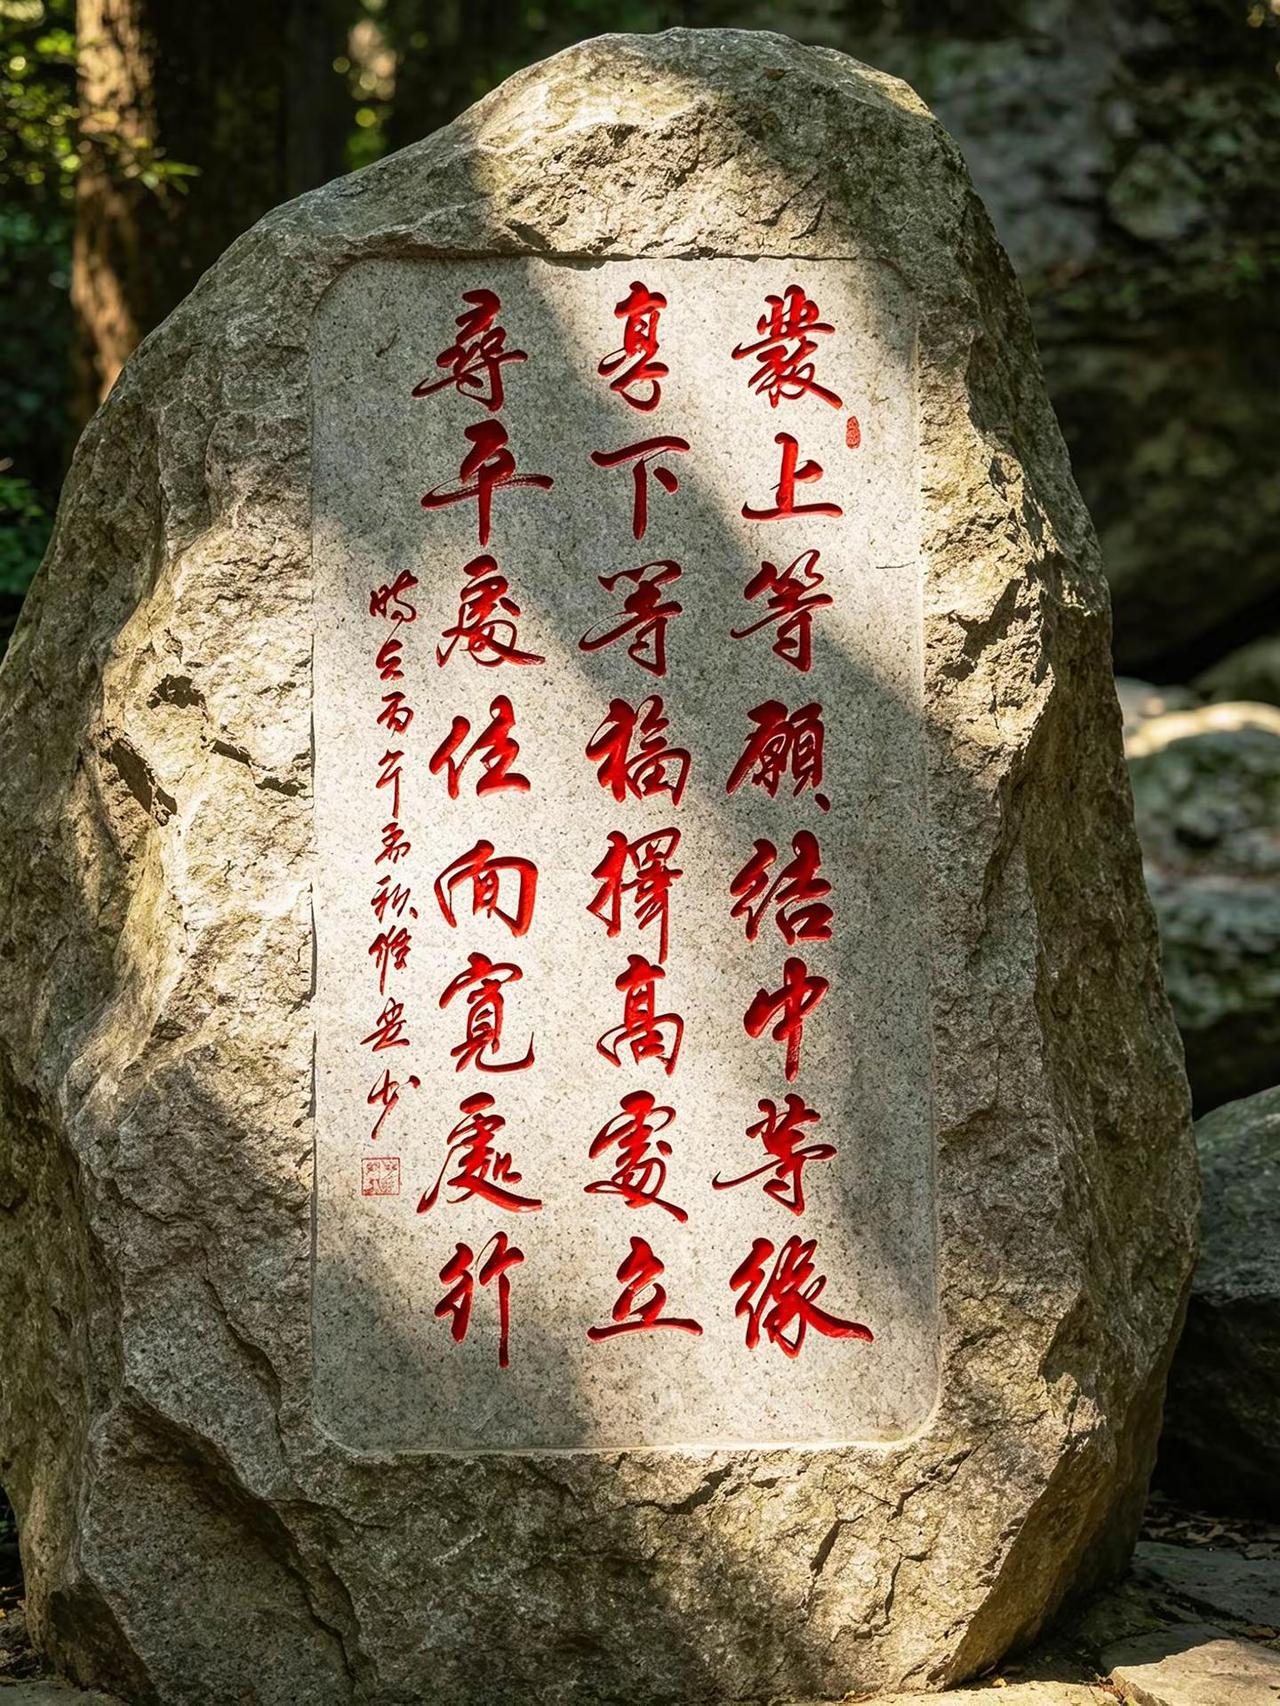 發上等願結中等緣
享下等福擇高處立
尋平處住向寬處行
時之丙午